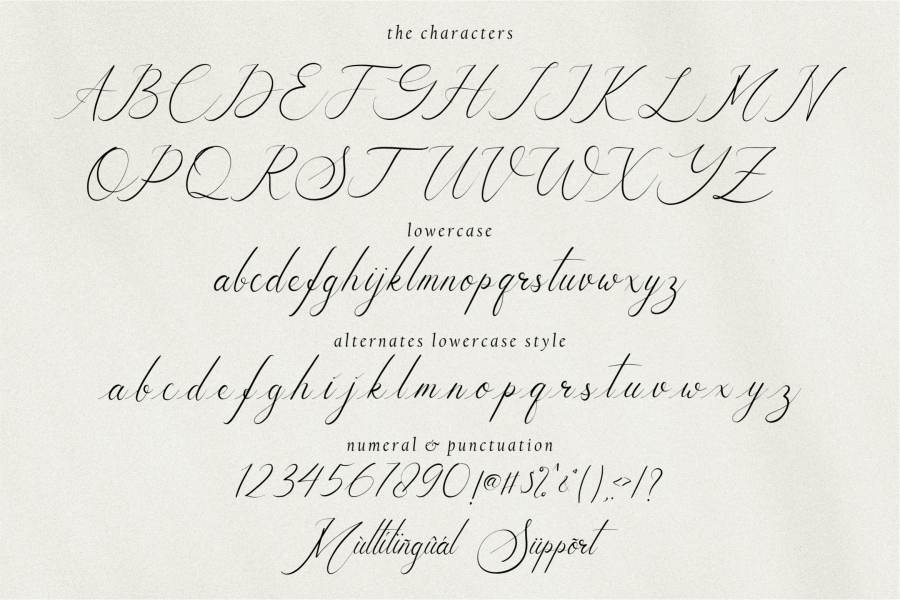 the characters
ABCDEFGHIJKLMN
OPQRSTUVWXYZ
lowercase
abcdefghijklmnopqrstuvwxyz
alternates lowercase style
abcdefghijklmnopqrstuvwxyz
numeral & punctuation
1234567890